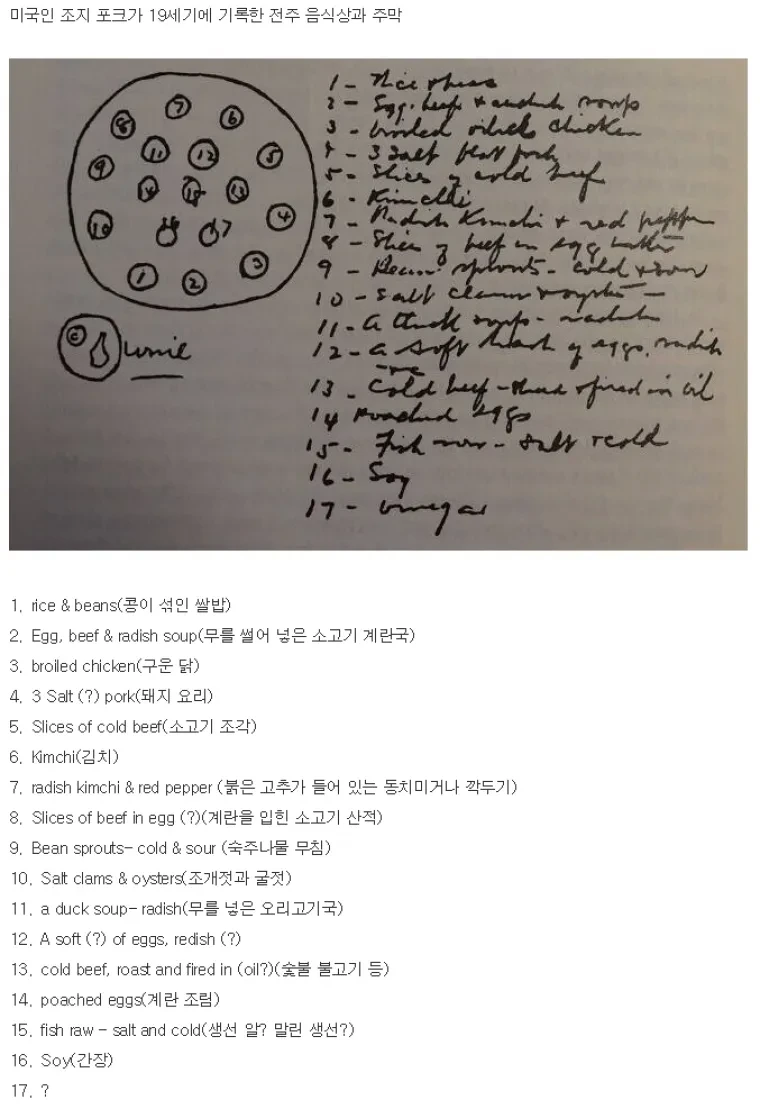 미국인 조지 포크가 19세기에 기록한 전주 음식상과 주막
7
8
6
11
12
5
9
14
15
13
10
16
17
4
1
2
3
1 - Rice & beans
2 - Egg, beef & radish soup
3 broiled chicken
4 - 3 Salt
5 - Slices of cold beef
6 - Kimchi
7 - Radish Kimchi & red pepper
8 - Slices of beef in egg
9 - Bean sprouts - cold & sour
10 - Salt clams & oysters -
11 - A soup - radish
12 - A soft of eggs, radish
13 - Cold beef - fired in oil
14 Poached Eggs
15 - Fish - salt & cold
16 - Soy
17 - vinegar
1. rice & beans(콩이 섞인 쌀밥)
2. Egg, beef & radish soup(무를 썰어 넣은 소고기 계란국)
3. broiled chicken(구운 닭)
4. 3 Salt (?) pork(돼지 요리)
5. Slices of cold beef(소고기 조각)
6. Kimchi(김치)
7. radish kimchi & red pepper (붉은 고추가 들어 있는 동치미거나 깍두기)
8. Slices of beef in egg (?)(계란을 입힌 소고기 산적)
9. Bean sprouts- cold & sour (숙주나물 무침)
10. Salt clams & oysters(조개젓과 굴젓)
11. a duck soup- radish(무를 넣은 오리고기국)
12. A soft (?) of eggs, redish (?)
13. cold beef, roast and fired in (oil?)(숯불 불고기 등)
14. poached eggs(계란 조림)
15. fish raw - salt and cold(생선 알? 말린 생선?)
16. Soy(간장)
17. ?